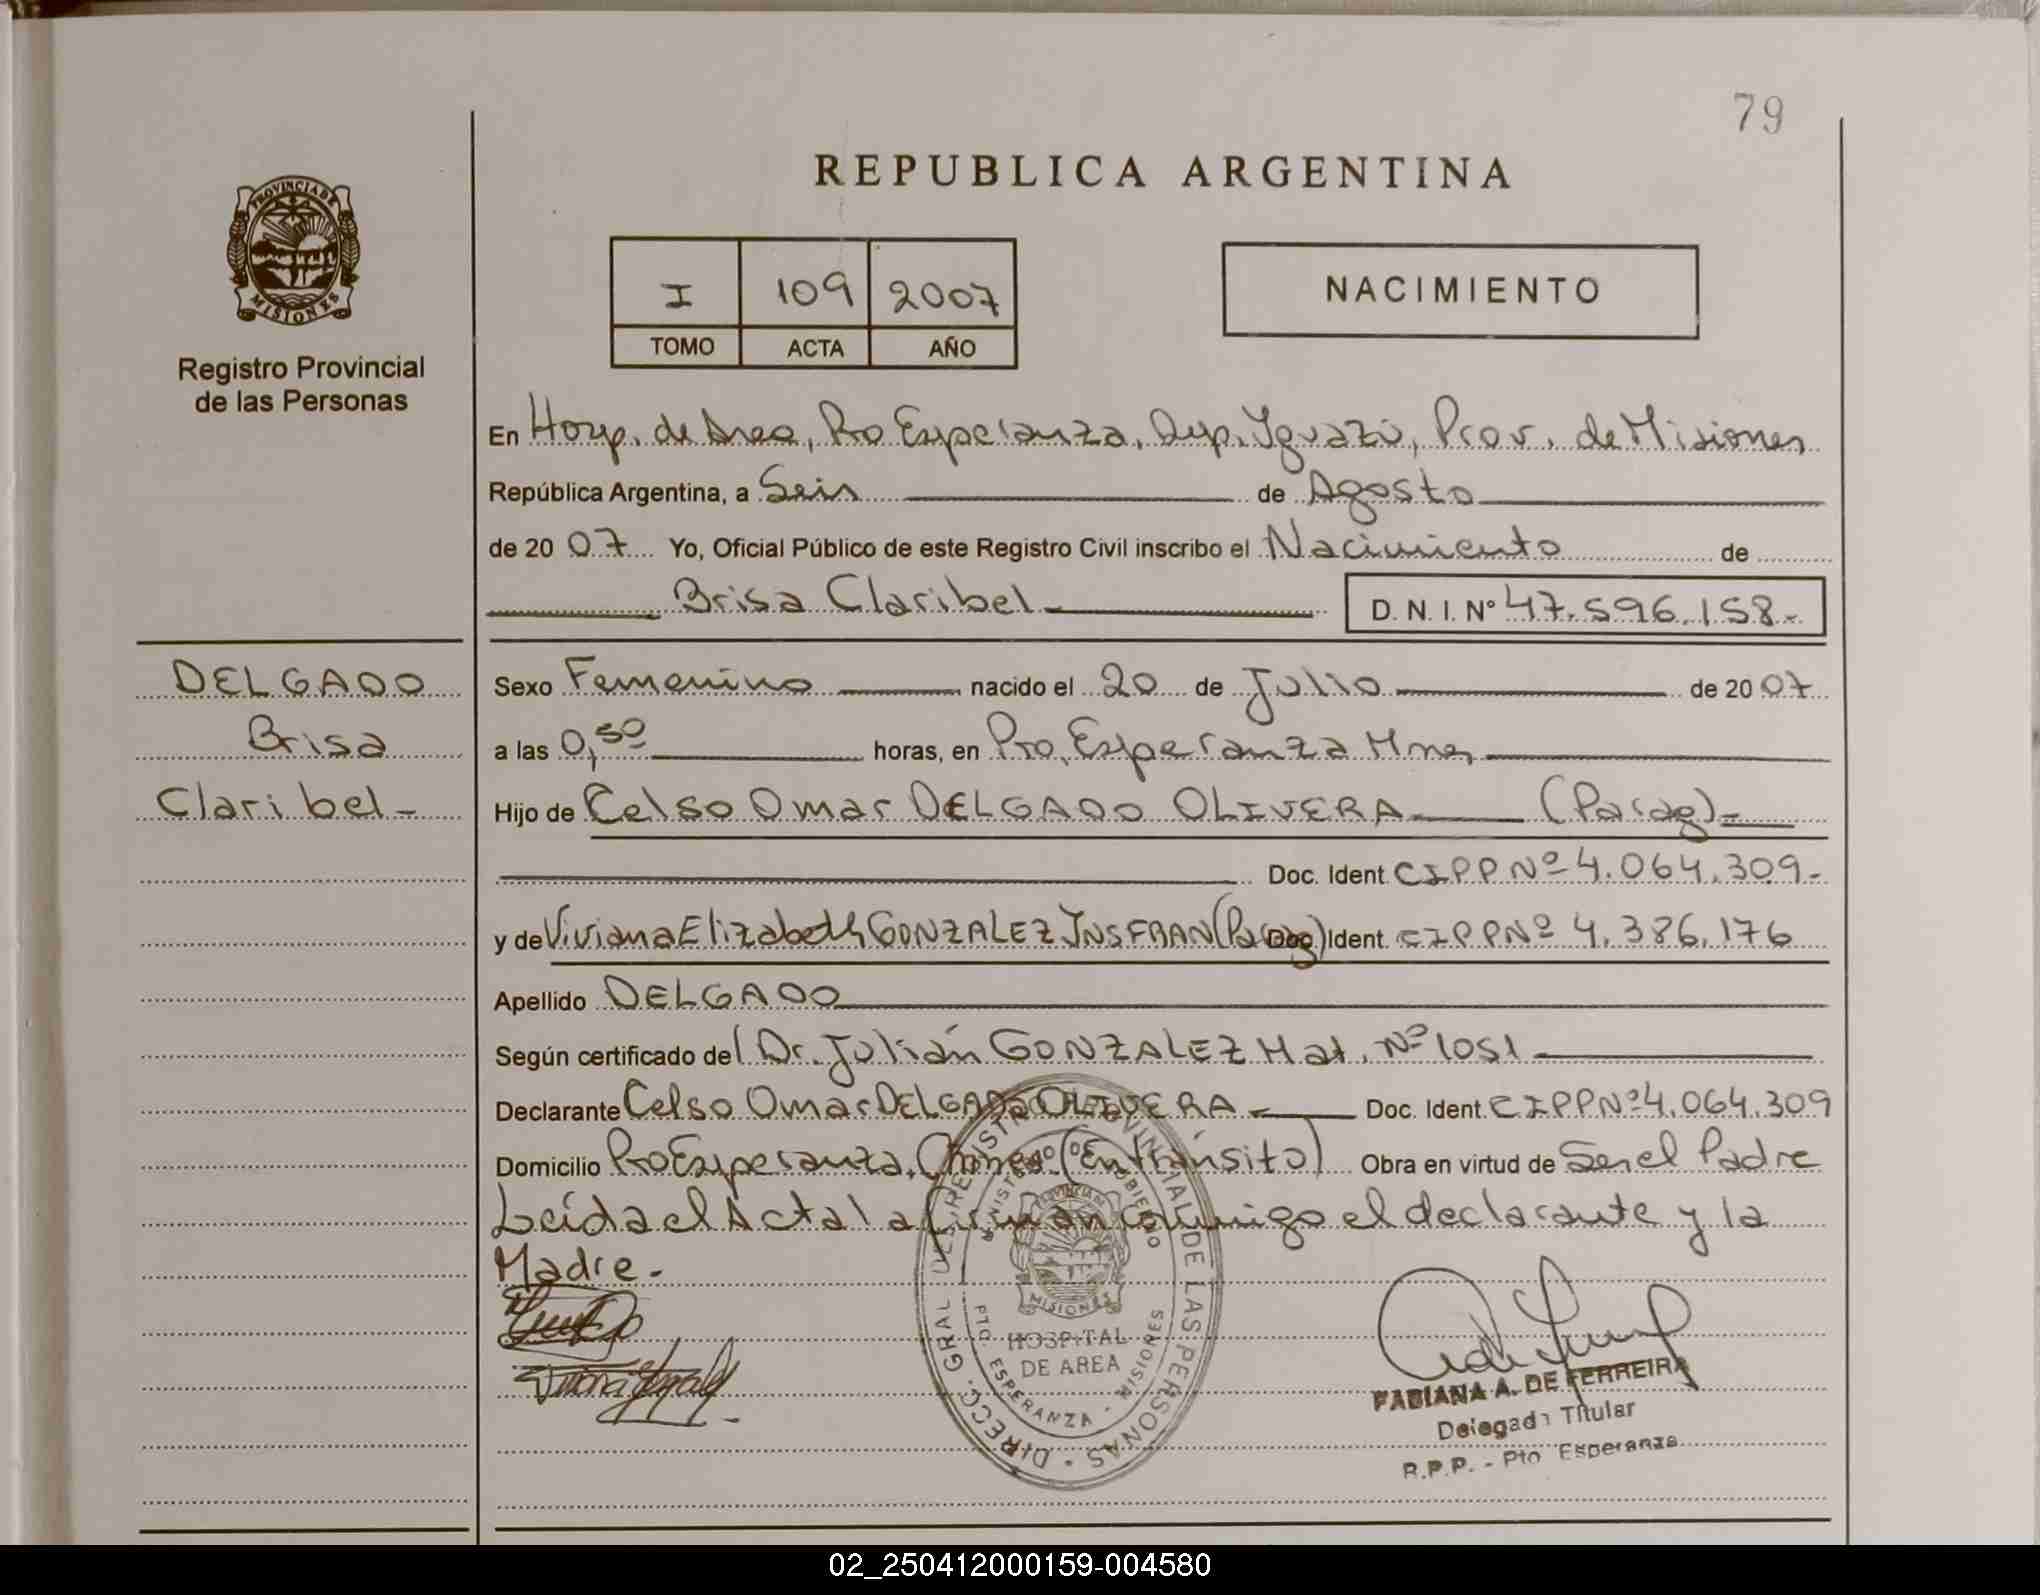 79
REPUBLICA ARGENTINA
PROVINCIA DE
MISIONES
Registro Provincial
de las Personas
I 109 2007
TOMO ACTA AÑO
NACIMIENTO
En Hosp. de Area, Pto Esperanza, Dep. Iguazú, Prov. de Misiones
República Argentina, a Seis de Agosto
de 2007 Yo, Oficial Público de este Registro Civil inscribo el Nacimiento de
Brisa Claribel D. N. I. Nº 47.596.158.-
DELGADO
Brisa
Claribel-
Sexo Femenino nacido el 20 de Julio de 2007
a las 0,50 horas, en Pto. Esperanza Mnes,
Hijo de Celso Omar DELGADO OLIVERA (Parag)-
Doc. Ident. CIPP Nº 4.064.309-
y de Viviana Elizabeth GONZALEZ INSFRAN (Parag) Doc. Ident. CIPP Nº 4.386.176
Apellido DELGADO
Según certificado del Dr. Julián GONZALEZ Mat. Nº 1051
Declarante Celso Omar DELGADO OLIVERA- Doc. Ident. CIPP Nº 4.064.309
Domicilio Pto Esperanza, (En tránsito) Obra en virtud de Ser el Padre
Leída el Acta la firman conmigo el declarante y la
Madre.-
DIRECC. GRAL DEL REGISTRO PROVINCIAL DE LAS PERSONAS
MINISTERIO DE GOBIERNO
PROVINCIA DE
MISIONES
HOSPITAL
DE AREA
PTO. ESPERANZA - MISIONES
FABIANA A. DE FERREIRA
Delegada Titular
R.P.P. - Pto Esperanza
02_250412000159-004580